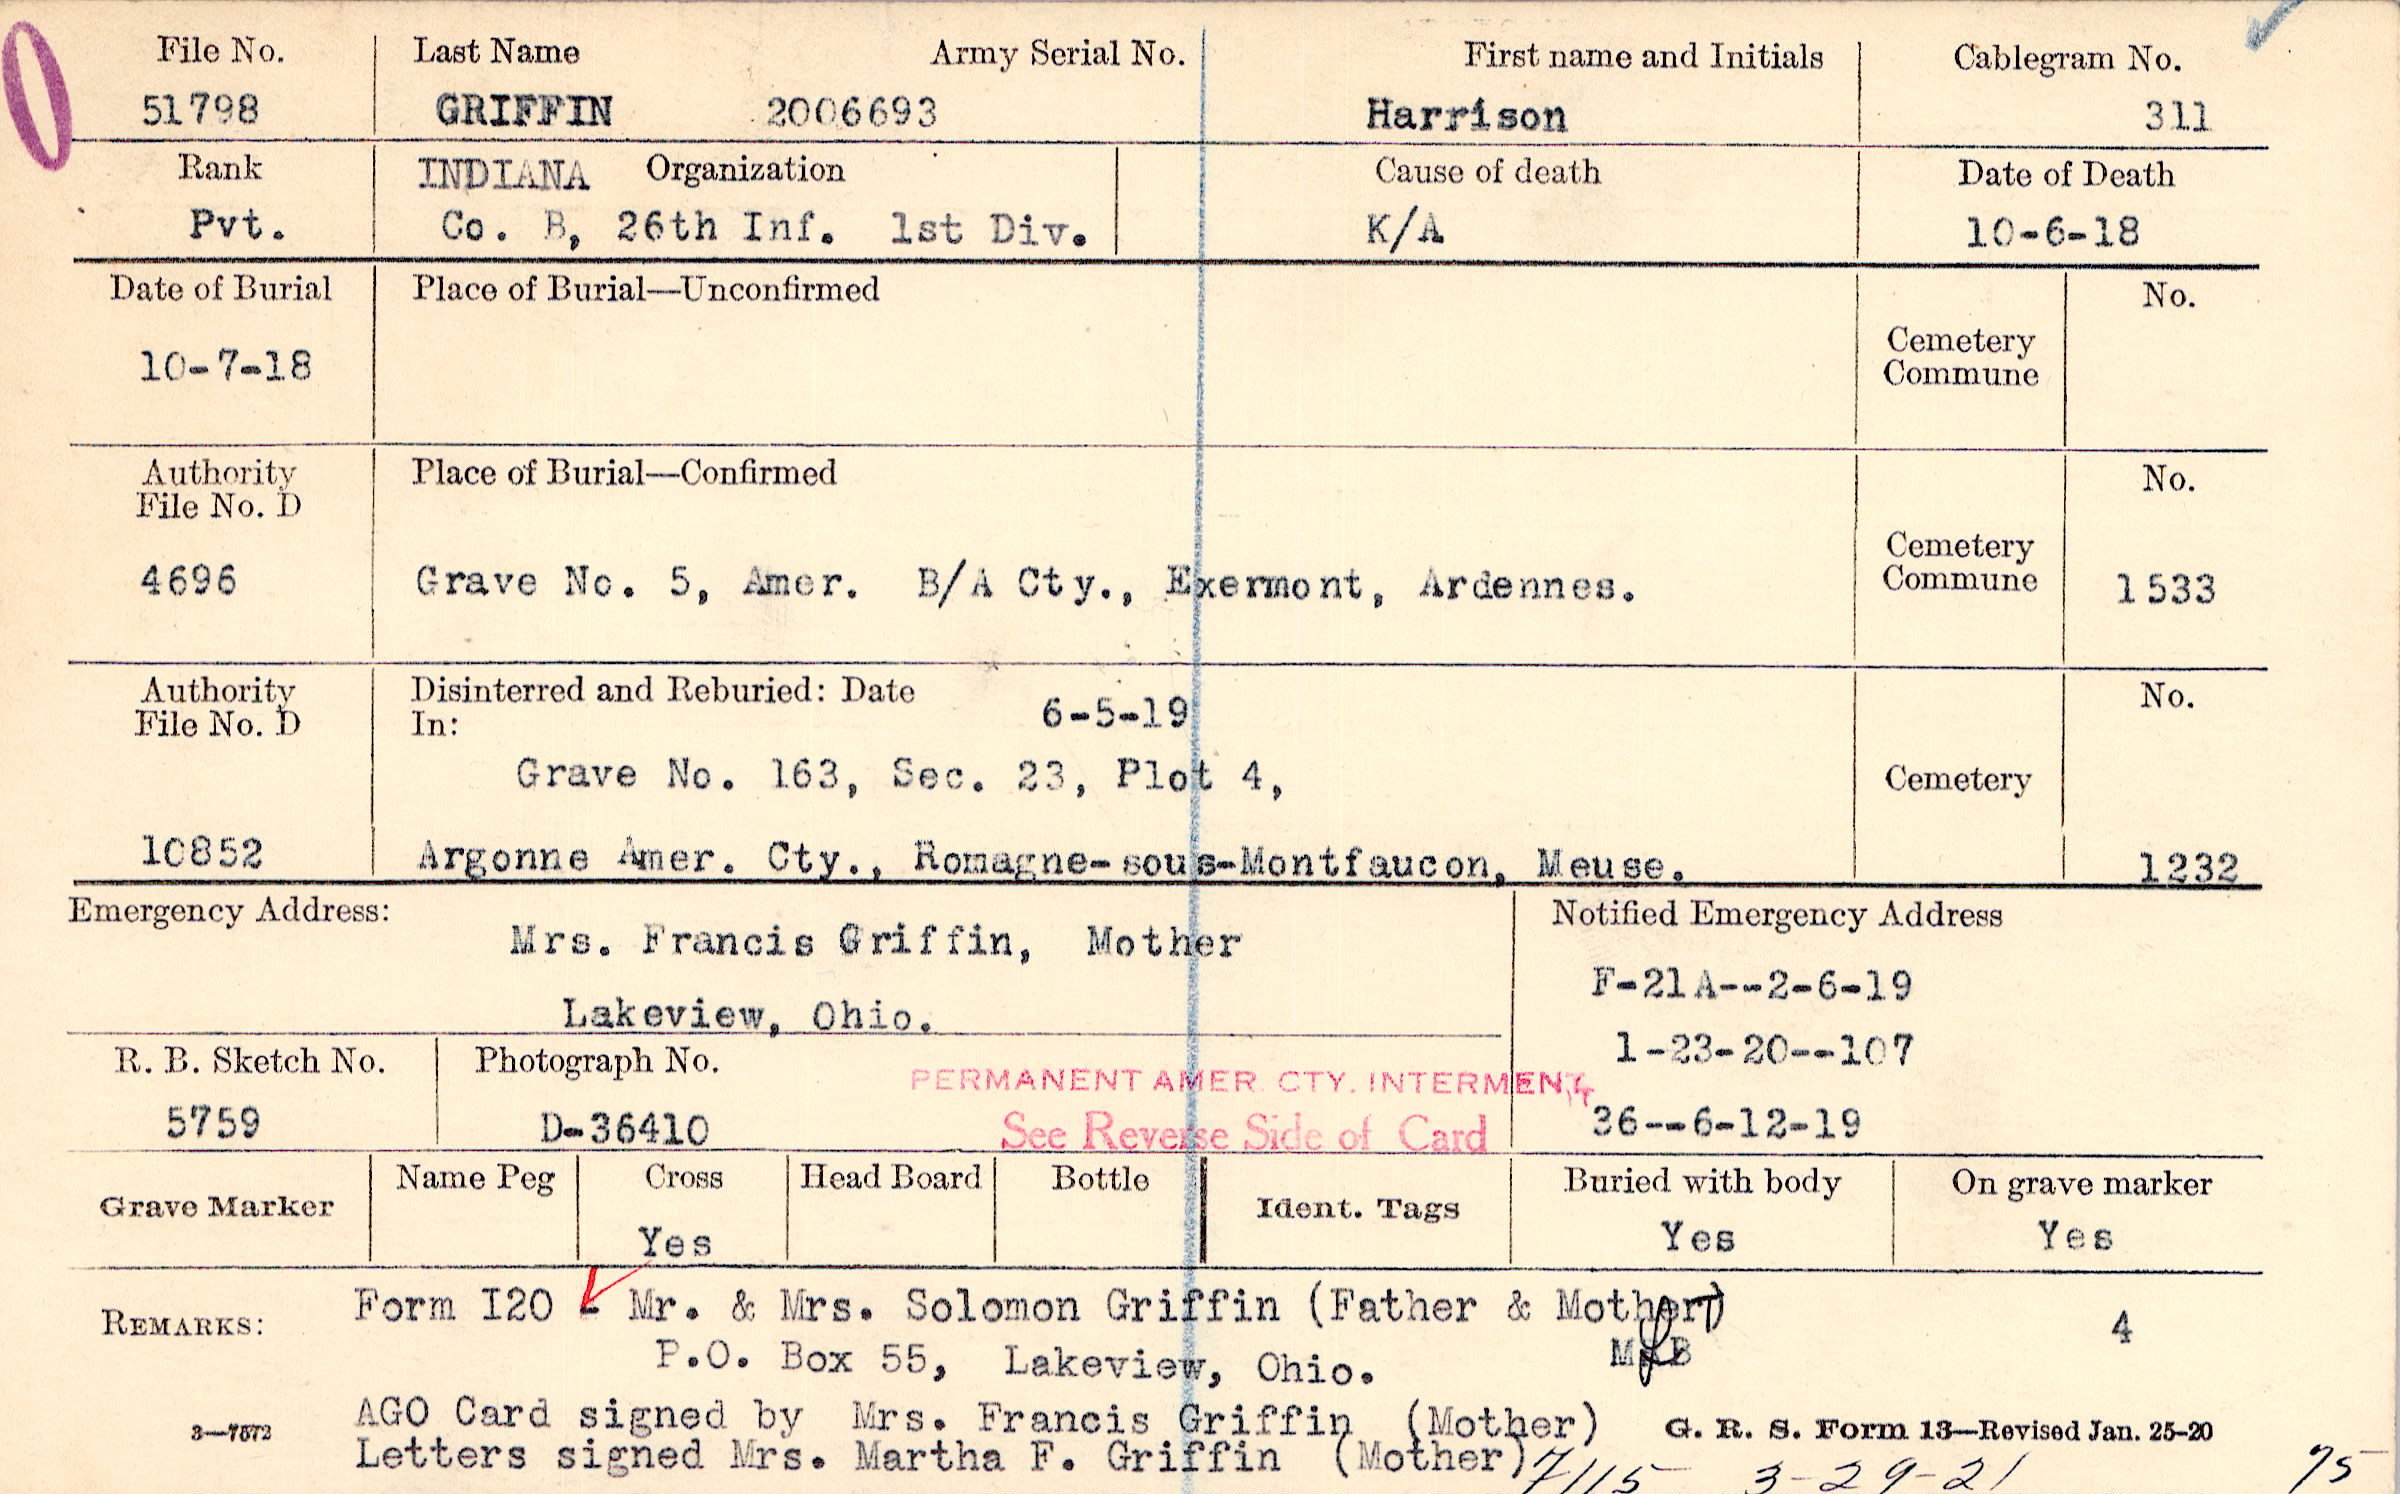 File No. Last Name Army Serial No. First name and Initials Cablegram No.
51798 GRIFFIN 2006693 Harrison 311
Rank INDIANA Organization Cause of death Date of Death
Pvt. Co. B, 26th Inf. 1st Div. K/A 10-6-18
Date of Burial Place of Burial—Unconfirmed No.
10-7-18 Cemetery
Commune
Authority Place of Burial—Confirmed No.
File No. D
Cemetery
4696 Grave No. 5, Amer. B/A Cty., Exermont, Ardennes. Commune 1533
Authority Disinterred and Reburied: Date 6-5-19 No.
File No. D In:
Grave No. 163, Sec. 23, Plot 4, Cemetery
10852 Argonne Amer. Cty., Romagne-sous-Montfaucon, Meuse. 1232
Emergency Address: Notified Emergency Address
Mrs. Francis Griffin, Mother
F-21A--2-6-19
Lakeview, Ohio.
1-23-20--107
R. B. Sketch No. Photograph No.
PERMANENT AMER. CTY. INTERMENT
5759 D-36410 See Reverse Side of Card 36--6-12-19
Grave Marker Name Peg Cross Head Board Bottle Ident. Tags Buried with body On grave marker
Yes Yes Yes
REMARKS: Form 120 - Mr. & Mrs. Solomon Griffin (Father & Mother) 4
P.O. Box 55, Lakeview, Ohio.
AGO Card signed by Mrs. Francis Griffin (Mother)
3—7572 G. R. S. Form 13—Revised Jan. 25-20
Letters signed Mrs. Martha F. Griffin (Mother)
7115 3-29-21 75